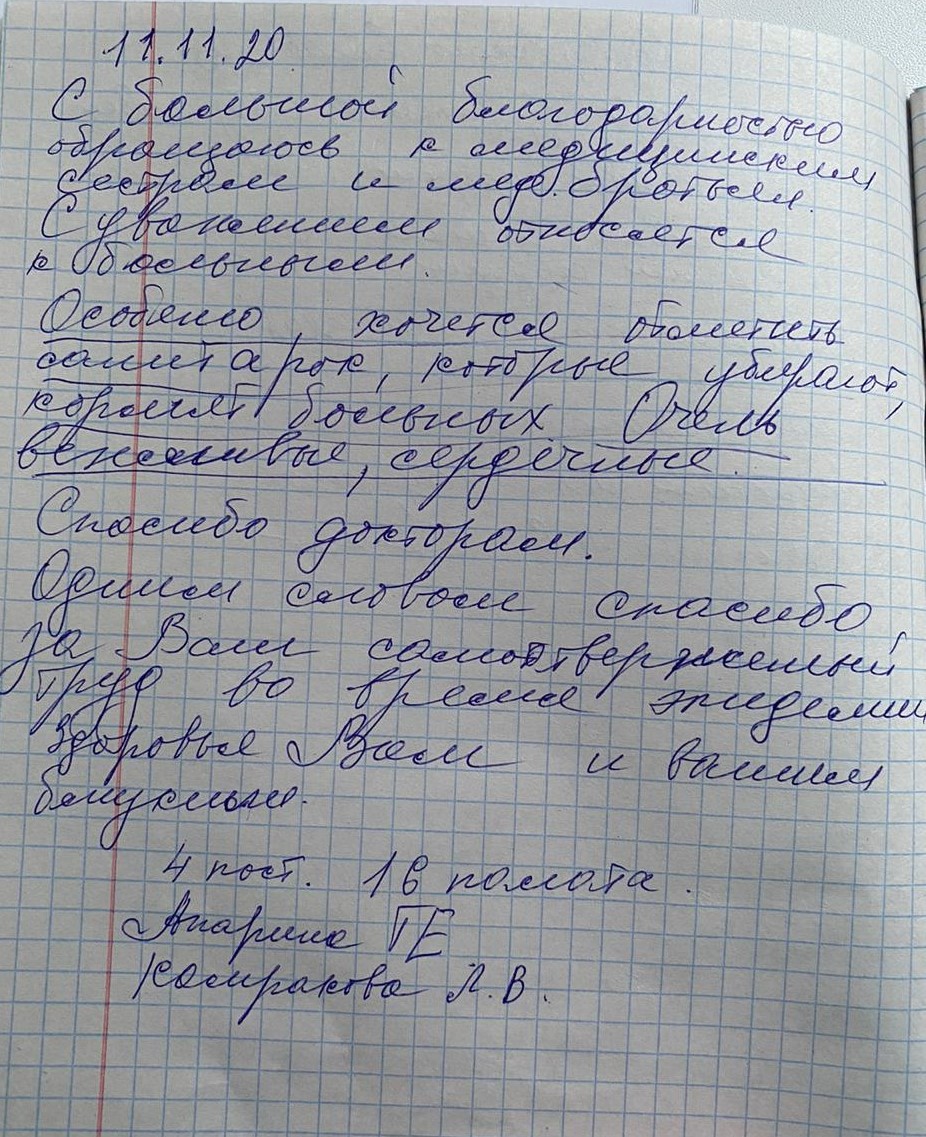 11.11.20
С большой благодарностью
обращаюсь к медицинским
сестрам и мед. братьям.
С уважением относятся
к больным.
Особенно, хочется отметить
санитарок, которые убирают,
кормят больных Очень
вежливые, сердечные.
Спасибо докторам.
Одним словом спасибо
за Ваш самоотверженный
труд во время эпидемии
Здоровья Вам и вашим
близким.
4 пост. 16 палата.
Апарина ТЕ
Камракова Л.В.